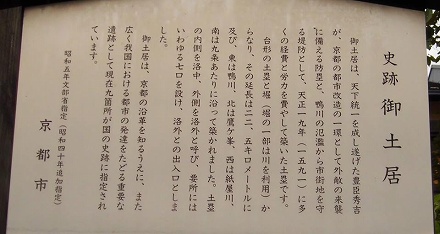 史跡 御土居
御土居は、天下統一を成し遂げた豊臣秀吉
が、京都の都市改造の一環として外敵の来襲
に備える防塁と、鴨川の氾濫から市街地を守
る堤防として、天正一九年(一五九一)に多
くの経費と労力を費やして築いた土塁です。
台形の土塁と堀(堀の一部は川を利用)か
らなり、その延長は二二、五キロメートルに
及び、東は鴨川、北は鷹ケ峯、西は紙屋川、
南は九条あたりに沿って築かれました。土塁
の内側を洛中、外側を洛外と呼び、要所には
いわゆる七口を設け、洛外との出入口としま
した。
御土居は、京都の沿革を知るうえに、また
広く我国における都市の発達をたどる重要な
遺跡として現在九箇所が国の史跡に指定され
ています。
昭和五年文部省指定(昭和四十年追加指定)
京都市